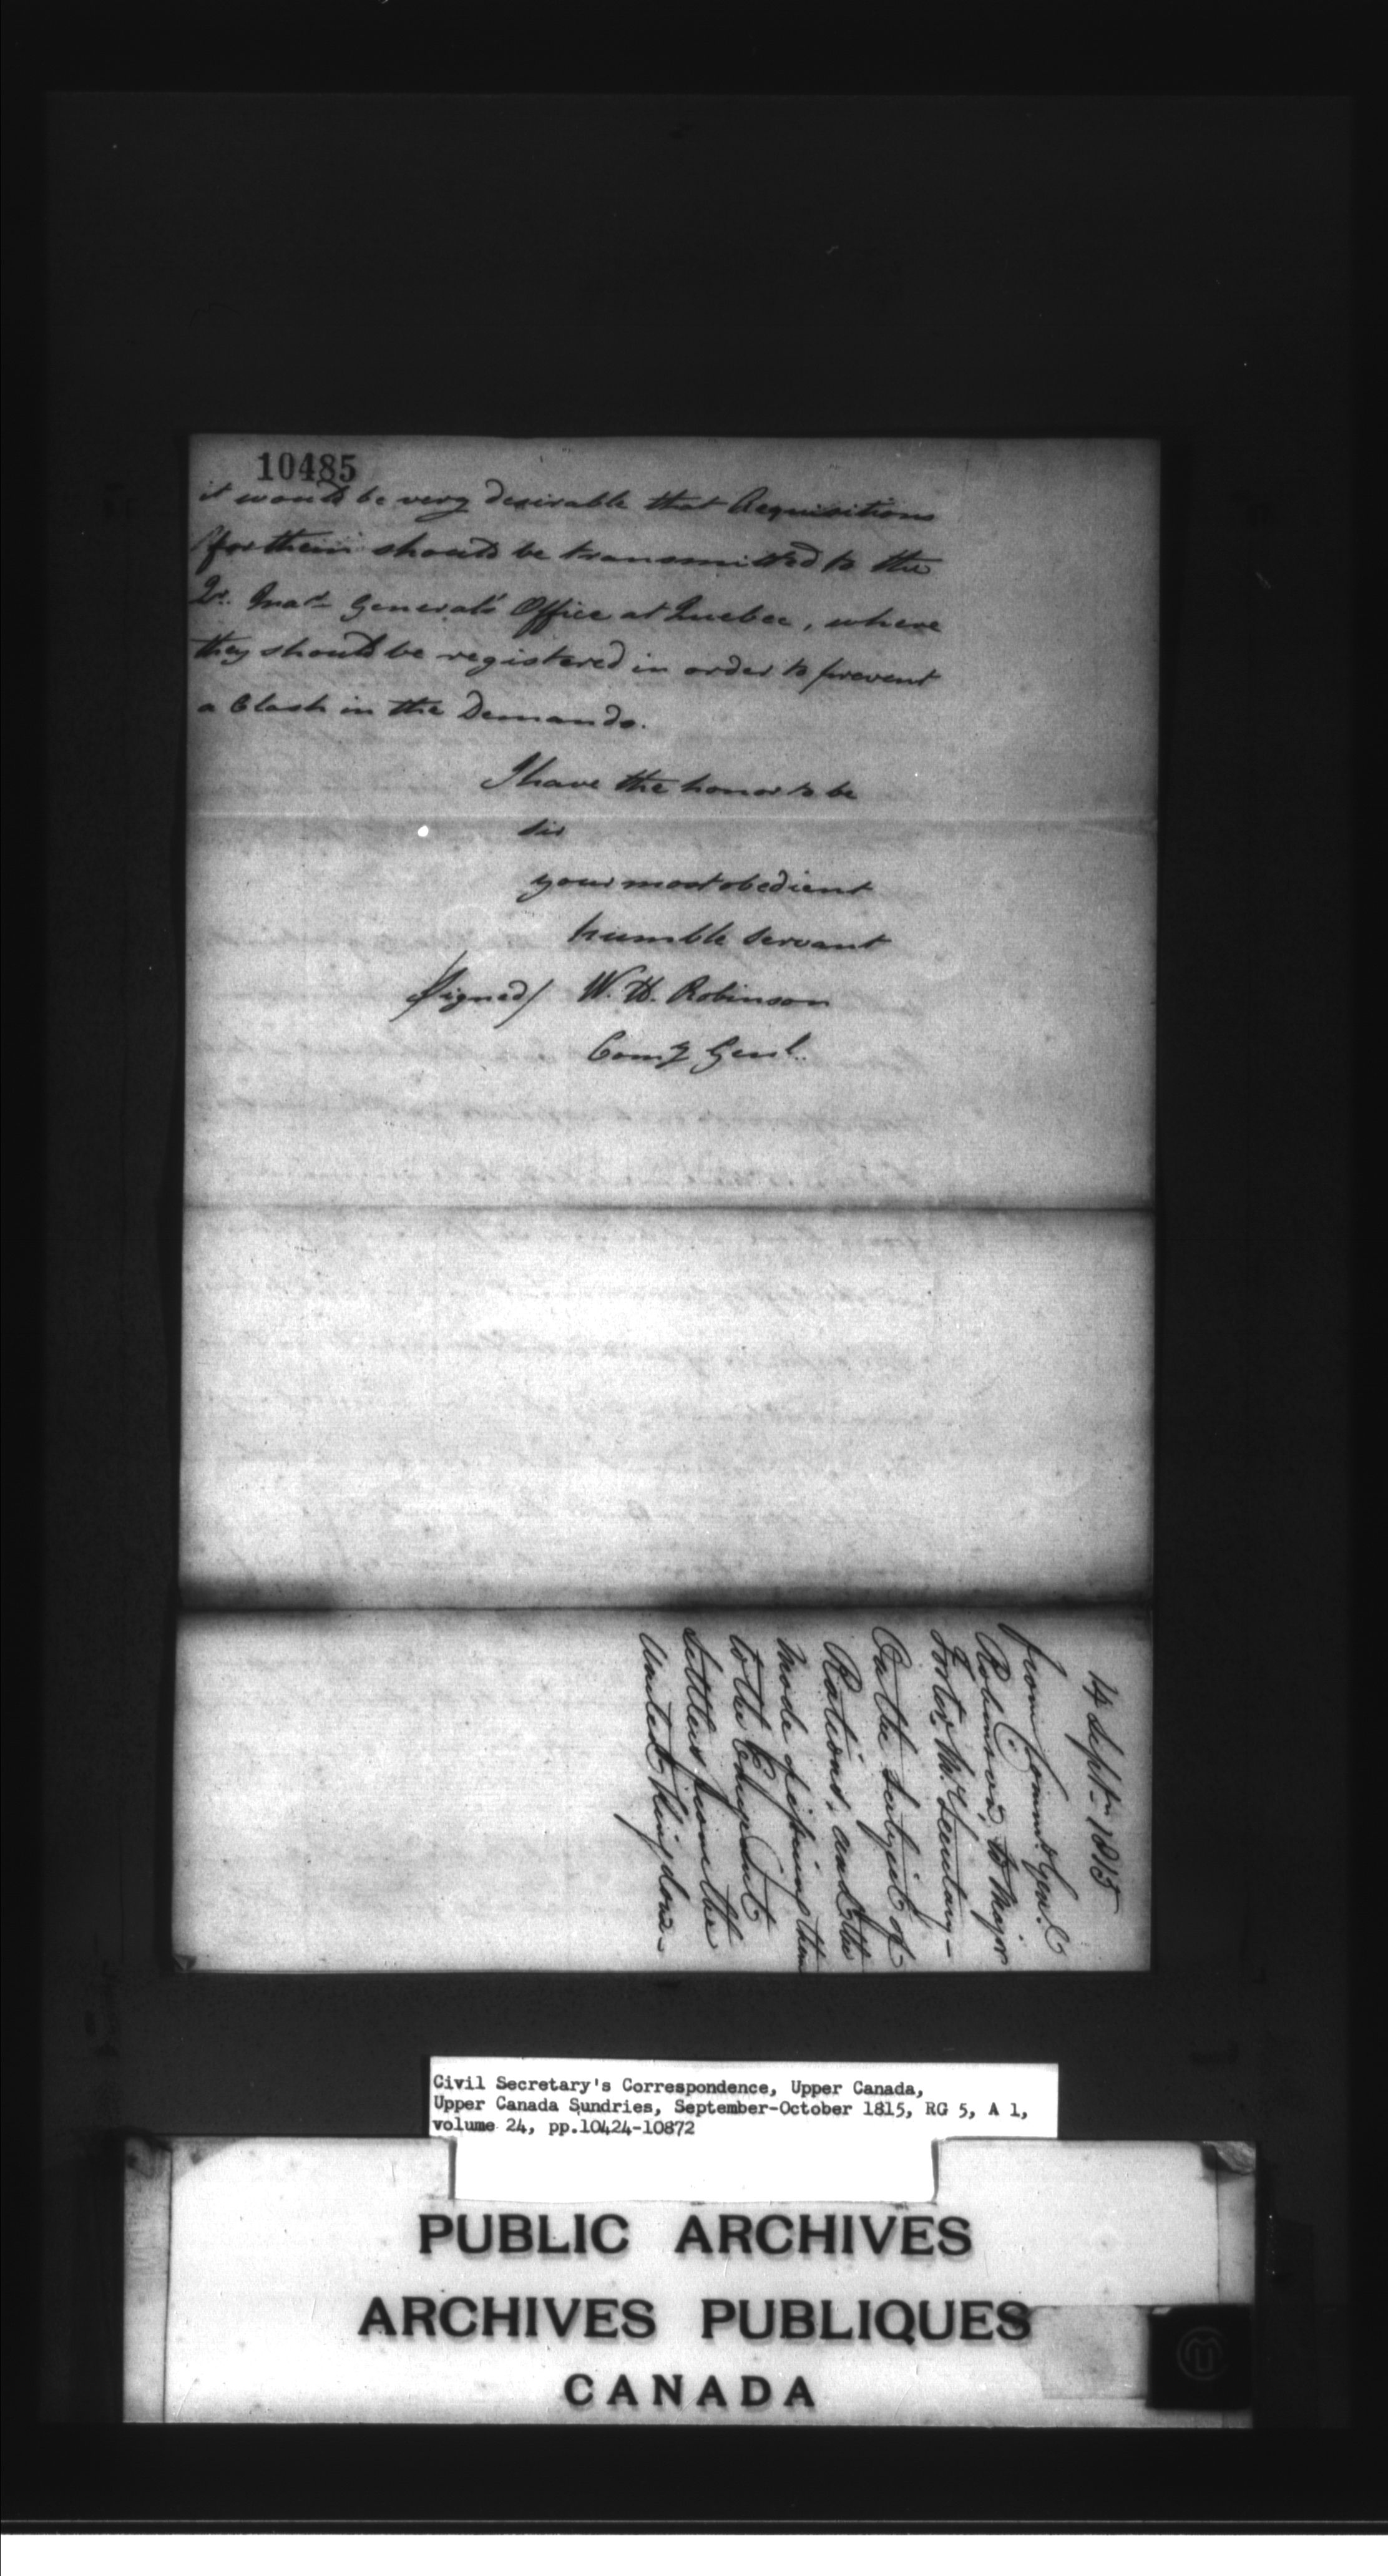 10485
it would be very desirable that Requisitions
for them should be transmitted to the
Qr. Mas.r General's Office at Quebec, where
they should be registered in order to prevent
a Clash in the Demands.
I have the honor to be
Sir
your most obedient
humble servant
/Signed/ W. H. Robinson
Comy Genl.
14 Septr. 1815
from Commy. Genl.
Robinson, to Major
Foster, My. Secretary—
On the subject of
Rations, and the
mode of issuing them
to the Emigrant
Settlers from the
United Kingdom.—
Civil Secretary's Correspondence, Upper Canada,
Upper Canada Sundries, September-October 1815, RG 5, A 1,
volume 24, pp.10424-10872
PUBLIC ARCHIVES
ARCHIVES PUBLIQUES
CANADA